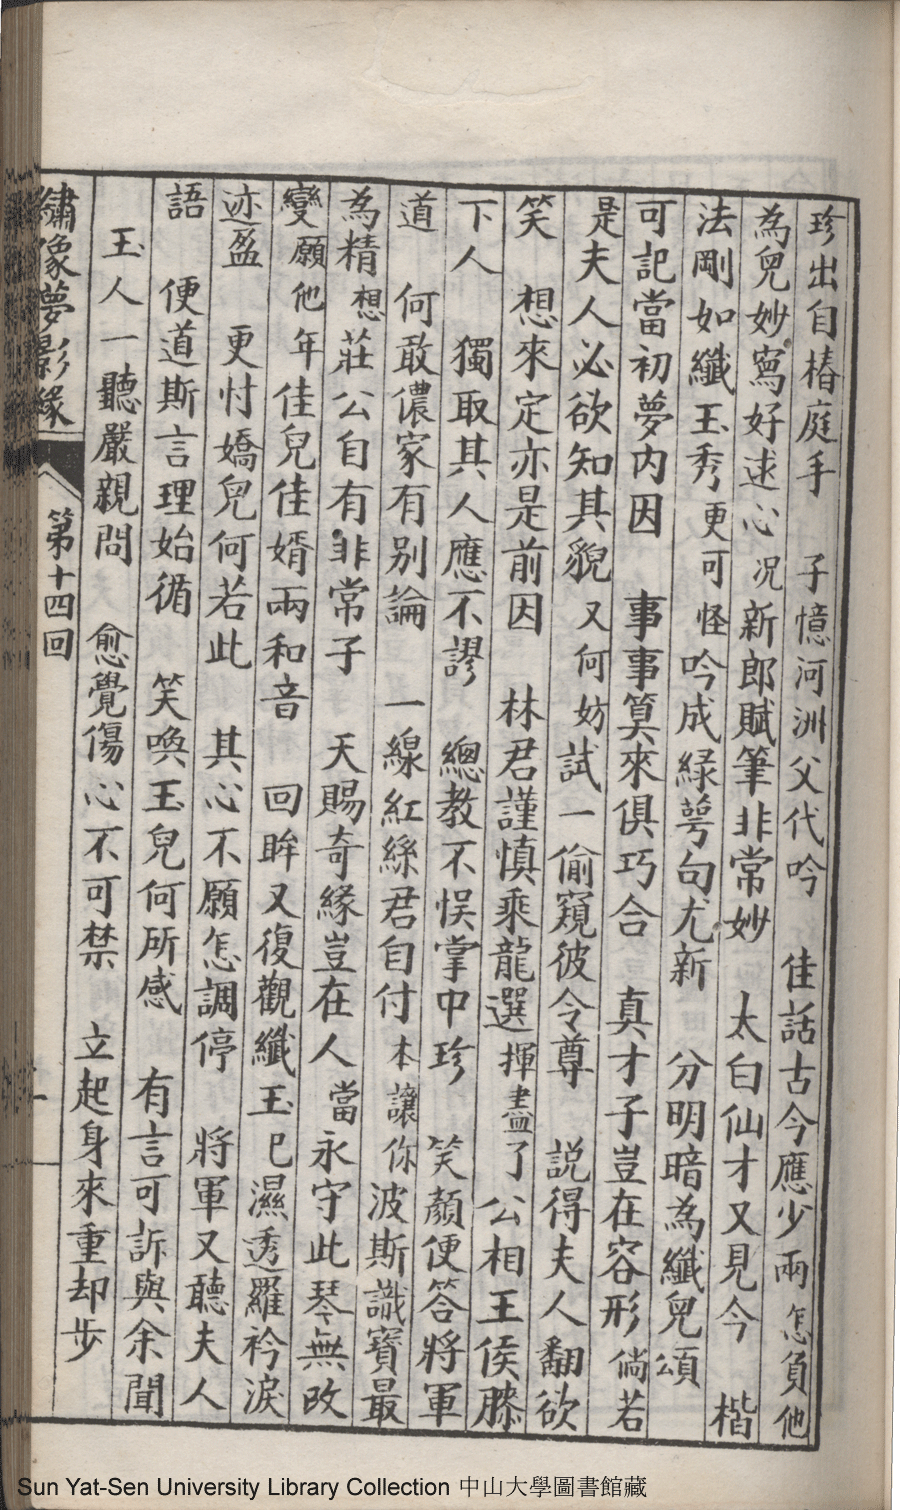 珍出自椿庭手　子憶河洲父代吟　佳話古今應少兩怎負他
為兒妙寫好逑心況新郎賦筆非常妙　太白仙才又見今　楷
法剛如纖玉秀更可怪吟成綠萼句尤新　分明暗為纖兒頌
可記當初夢內因　事事算來俱巧合　真才子豈在容形倘若
是夫人必欲知其貌又何妨試一偷窺彼令尊　説得夫人翻欲
笑　想來定亦是前因　林君謹慎乘龍選揮盡了公相王侯滕
下人　獨取其人應不謬　總教不悮掌中珍　笑顏便答將軍
道　何敢儂家有别論　一線紅絲君自付本讓你波斯識寶最
為精想莊公自有非常子　天賜奇緣豈在人當永守此琴無改
變願他年佳兒佳婿兩和音　回眸又復觀纖玉巳濕透羅衿淚
迹盈　更忖嬌兒何若此　其心不願怎調停　將軍又聽夫人
語　便道斯言理始循　笑喚玉兒何所感　有言可訴與余聞
玉人一聽嚴親問　愈覺傷心不可禁　立起身來重却步
繡像夢影緣　第十四回　一
Sun Yat-Sen University Library Collection 中山大學圖書館藏